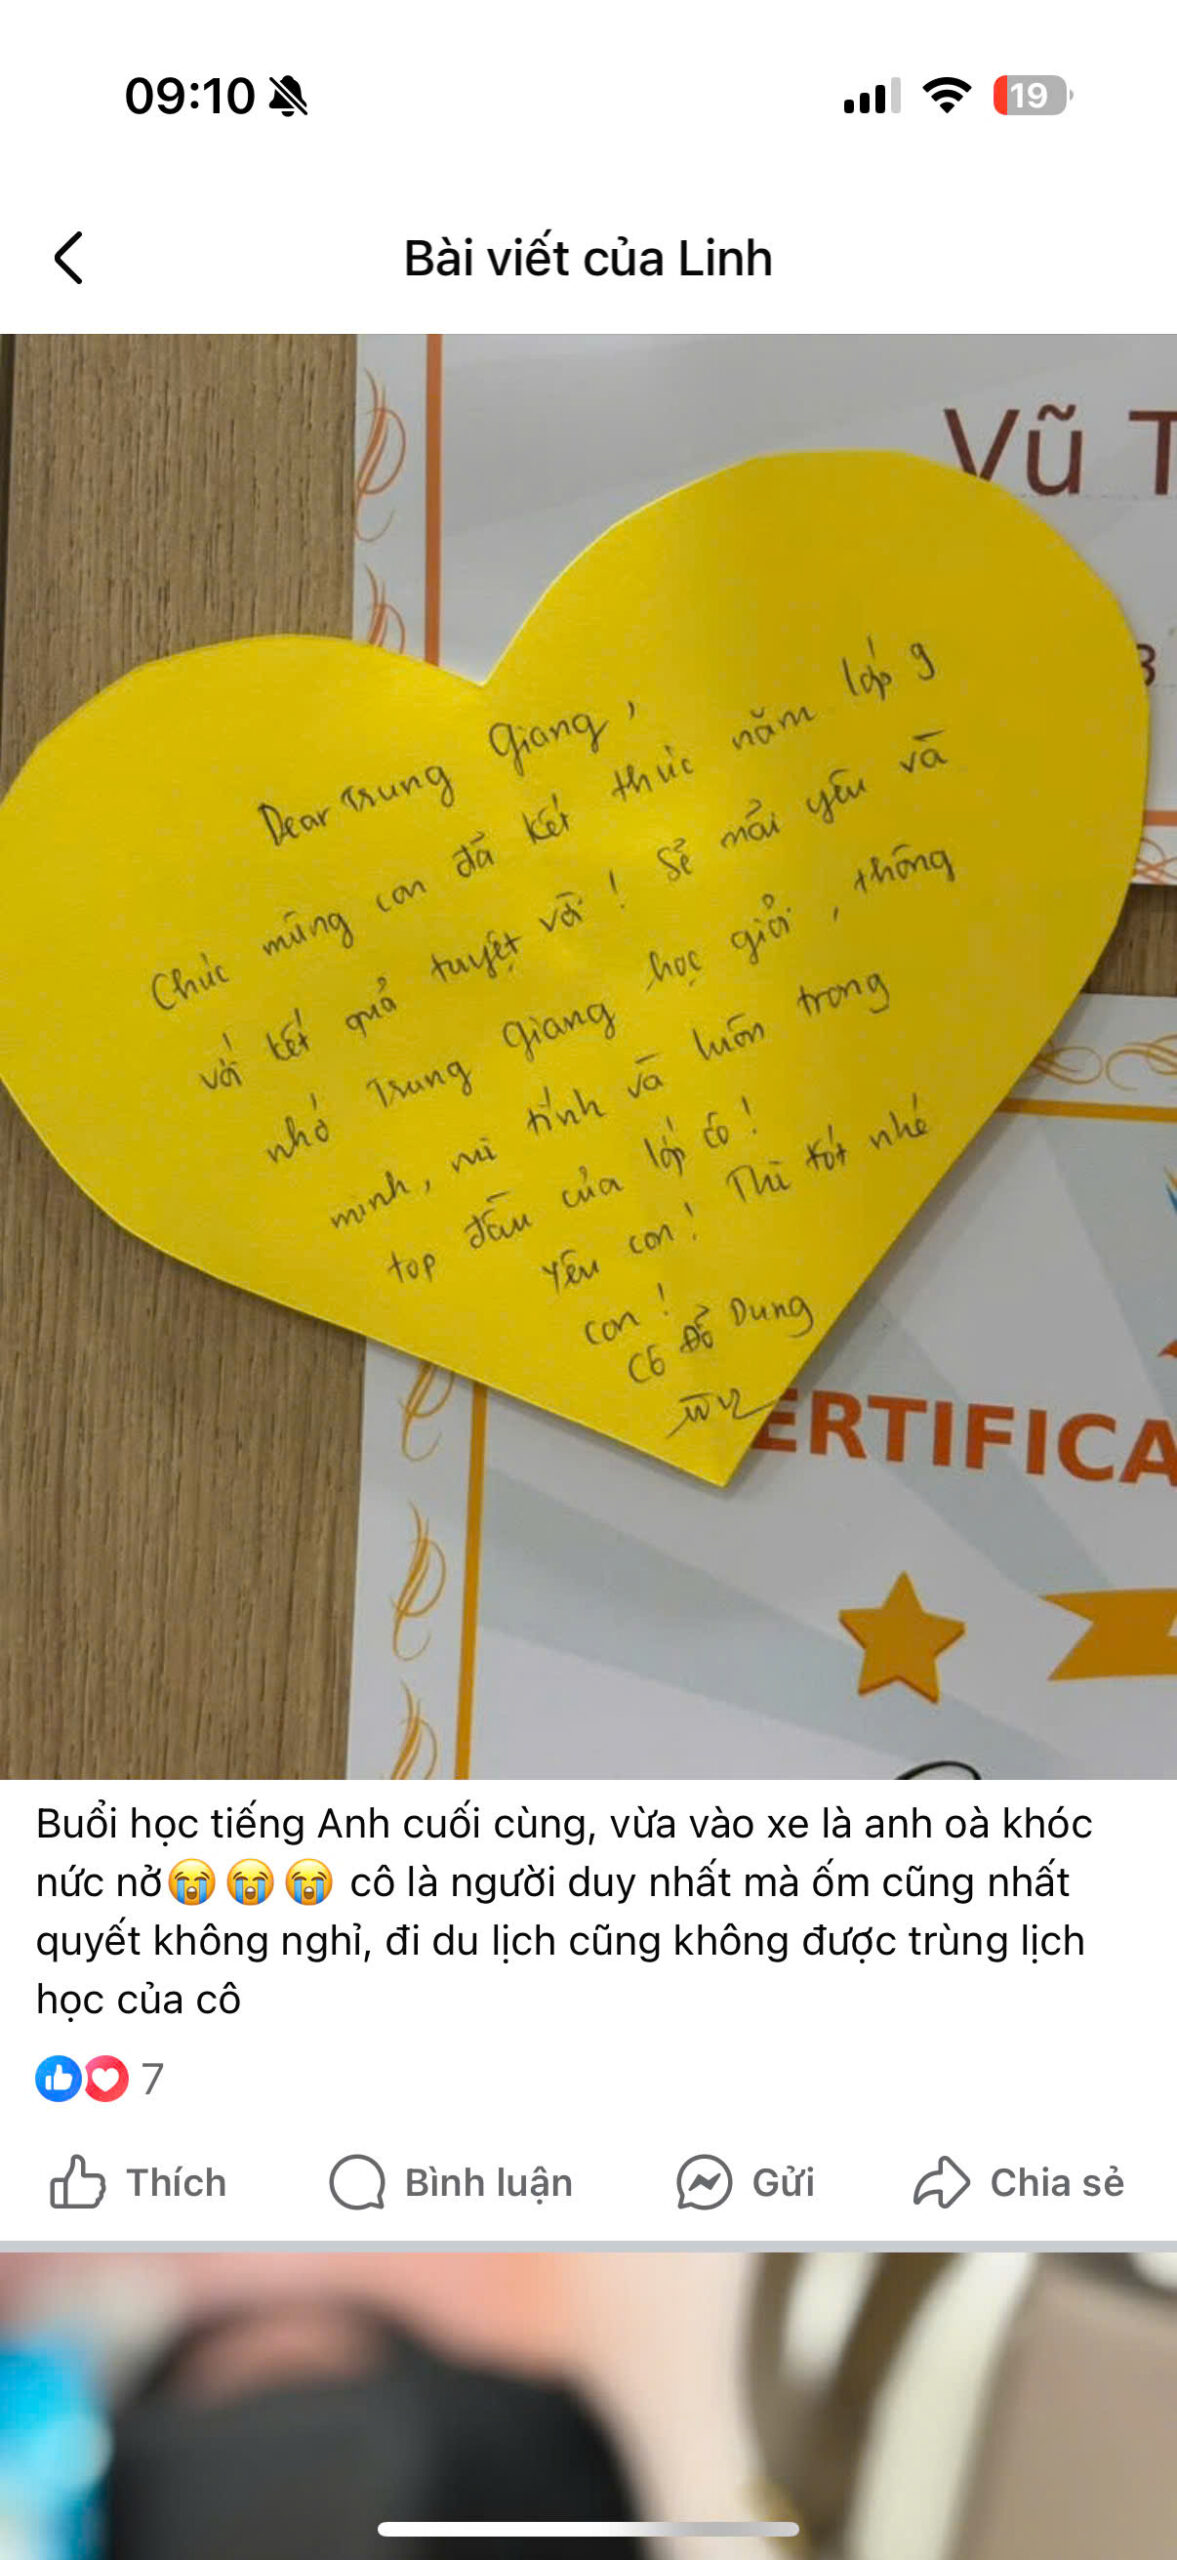 09:10
19
Bài viết của Linh
Vũ T
3
Dear Trung Giang,
Chúc mừng con đã kết thúc năm lớp 9
với kết quả tuyệt vời! Sẽ mãi yêu và
nhớ Trung Giang học giỏi, thông
minh, mi tính và luôn trong
top đầu của lớp cô!
Yêu con! Thi tốt nhé
con!
Cô Đỗ Dung
ERTIFICA
Buổi học tiếng Anh cuối cùng, vừa vào xe là anh oà khóc
nức nở😭😭😭 cô là người duy nhất mà ốm cũng nhất
quyết không nghỉ, đi du lịch cũng không được trùng lịch
học của cô
7
Thích
Bình luận
Gửi
Chia sẻ